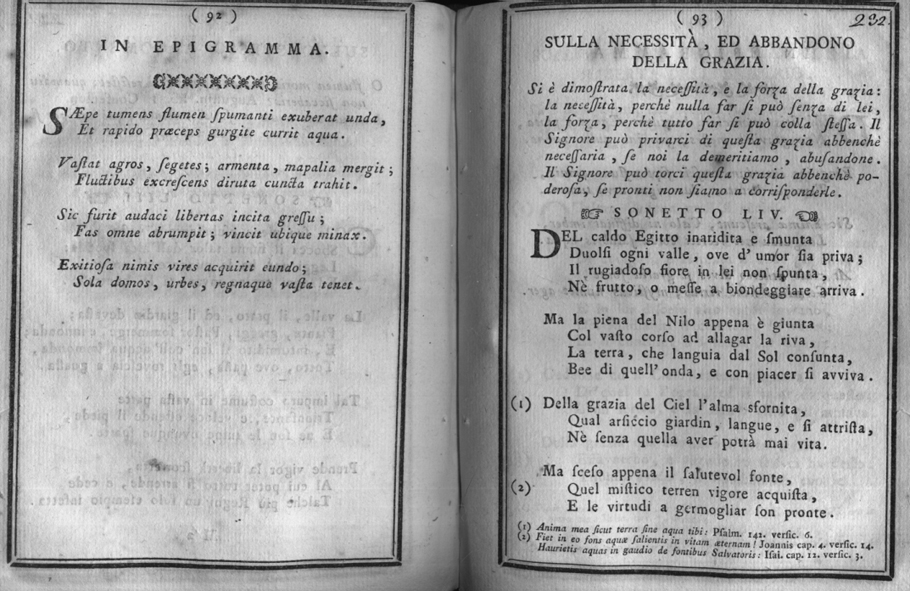 ( 92 )
IN EPIGRAMMA.
SÆpe tumens flumen ſpumanti exuberat unda,
Et rapido præceps gurgite currit aqua.
Vaſtat agros, ſegetes; armenta, mapalia mergit;
Fluctibus excreſcens diruta cuncta trahit.
Sic furit audaci libertas incita greſſu;
Fas omne abrumpit; vincit ubique minax.
Exitioſa nimis vires acquirit eundo;
Sola domos, urbes, regnaque vaſta tenet.
( 93 )
232.
SULLA NECESSITÀ, ED ABBANDONO
DELLA GRAZIA.
Si è dimoſtrata la neceſſità, e la forza della grazia:
la neceſſità, perchè nulla far ſi può ſenza di lei,
la forza, perchè tutto far ſi può colla ſteſſa. Il
Signore può privarci di queſta grazia abbenchè
neceſſaria, ſe noi la demeritiamo, abuſandone.
Il Signore può torci queſta grazia abbenchè po-
deroſa, ſe pronti non ſiamo a corriſponderle.
SONETTO LIV.
DEL caldo Egitto inaridita e ſmunta
Duolſi ogni valle, ove d'umor ſia priva;
Il rugiadoſo fiore in lei non ſpunta,
Nè frutto, o meſſe a biondeggiare arriva.
Ma la piena del Nilo appena è giunta
Col vaſto corſo ad allagar la riva,
La terra, che languia dal Sol conſunta,
Bee di quell'onda, e con piacer ſi avviva.
(1) Della grazia del Ciel l'alma sfornita,
Qual arſiccio giardin, langue, e ſi attriſta,
Nè ſenza quella aver potrà mai vita.
Ma ſceſo appena il ſalutevol fonte,
(2) Quel miſtico terren vigore acquiſta,
E le virtudi a germogliar ſon pronte.
(1) Anima mea ſicut terra ſine aqua tibi: Pſalm. 142. verſic. 6.
(2) Fiet in eo fons aquæ ſalientis in vitam æternam! Joannis cap. 4. verſic. 14.
Haurietis aquas in gaudio de fontibus Salvatoris: Iſai. cap. 12. verſic. 3.